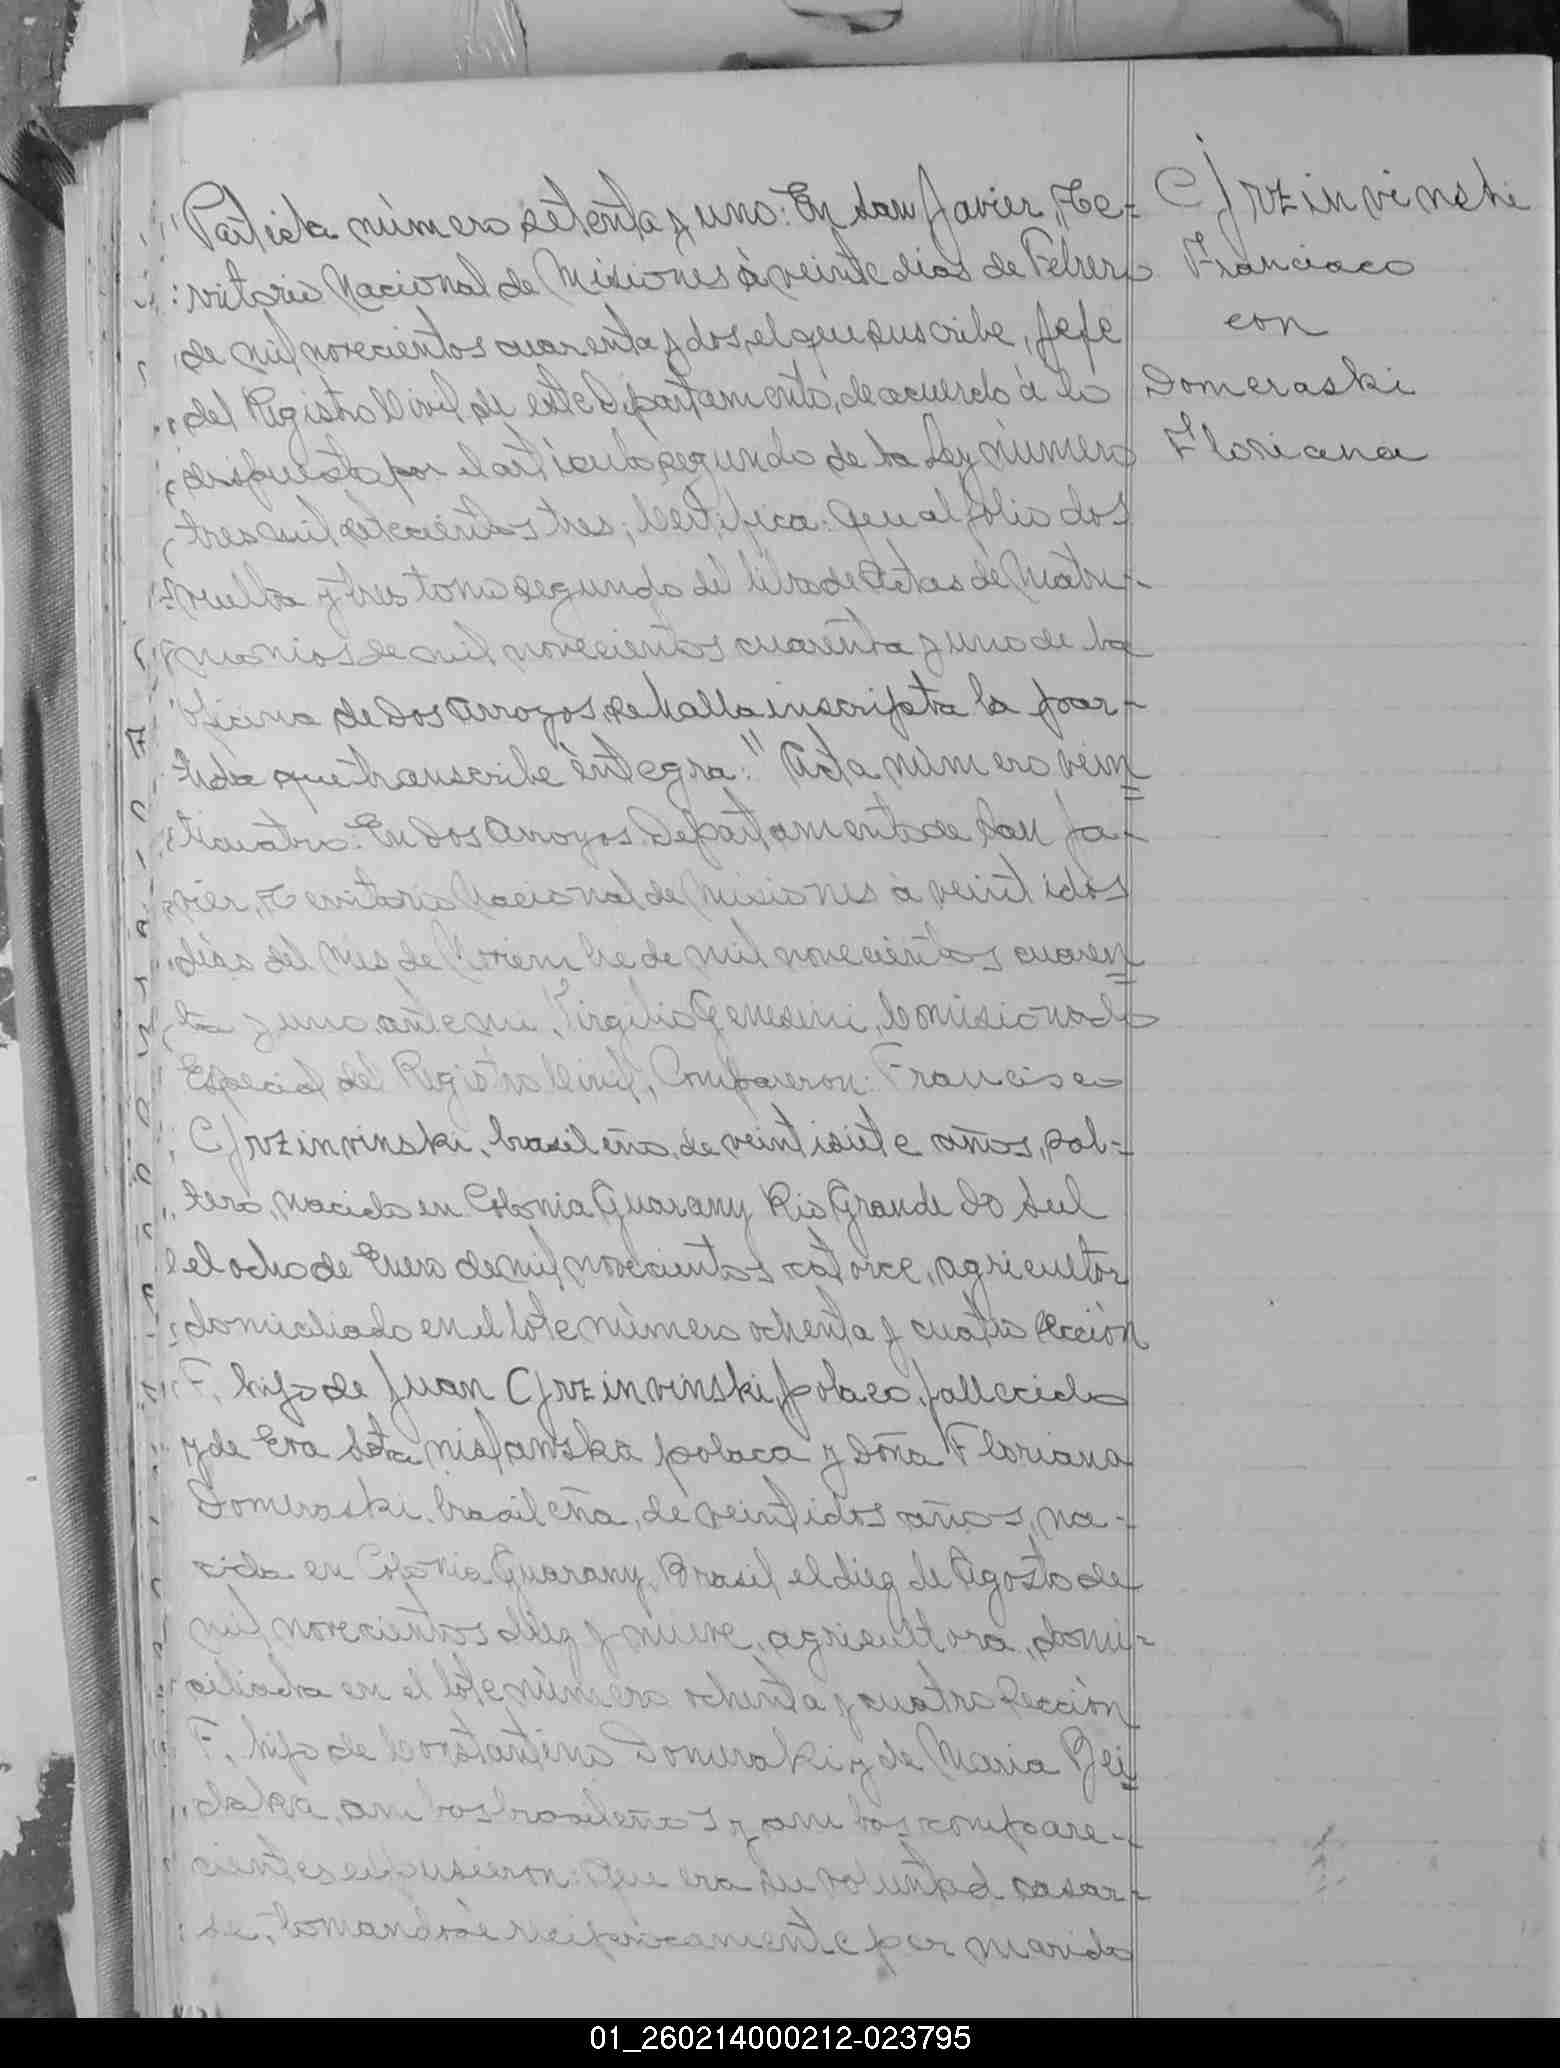 Partida número setenta y uno: En San Javier, Te-
rritorio Nacional de Misiones à veinte dias de Febrero
de mil novecientos cuarenta y dos, el que suscribe, Jefe
del Registro Civil de este Departamento, de acuerdo à lo
dispuesto por el artículo segundo de la Ley número
tres mil setecientos tres; Certifica: que al folio dos
vuelta y tres tomo segundo del libro de Actas de Matri-
monios de mil novecientos cuarenta y uno de la
Oficina de Dos Arroyos, se halla inscripta la par-
tida que transcribe èntegra: " Acta número vein
ticuatro: En Dos Arroyos Departamento de San Ja-
vier, Territorio Nacional de Misiones à veintidos
dias del Mes de Noviembre de mil novecientos cuaren
ta y uno, ante mi, Virgilio Genesini, Comisionado
Especial del Registro Civil, Compareron: Francisco
Cjrzinvinski, brasileño, de veintisiete años, sol-
tero, nacido en Colonia Guarany Rio Grande Do Sul
el ocho de Enero de mil novecientos catorce, agricultor
domiciliado en el lote número ochenta y cuatro Sección
F, hijo de Juan Cjrzinvinski, polaco, fallecido
y de Eva polaca y Doña Floriana
Domeraski, brasileña, de veintidos años, na-
cida en Colonia Guarany, Brasil el diez de Agosto de
mil novecientos diez y nueve, agricultora, domi-
ciliada en el lote número ochenta y cuatro Sección
F, hija de Constantino Domeraki y de Maria
ambos brasileños y ambos compare-
cientes expusieron: que era su voluntad casar-
se, tomandose reciprocamente por marido
Cjrzinvinski
Francisco
con
Domeraski
Floriana
01_260214000212-023795